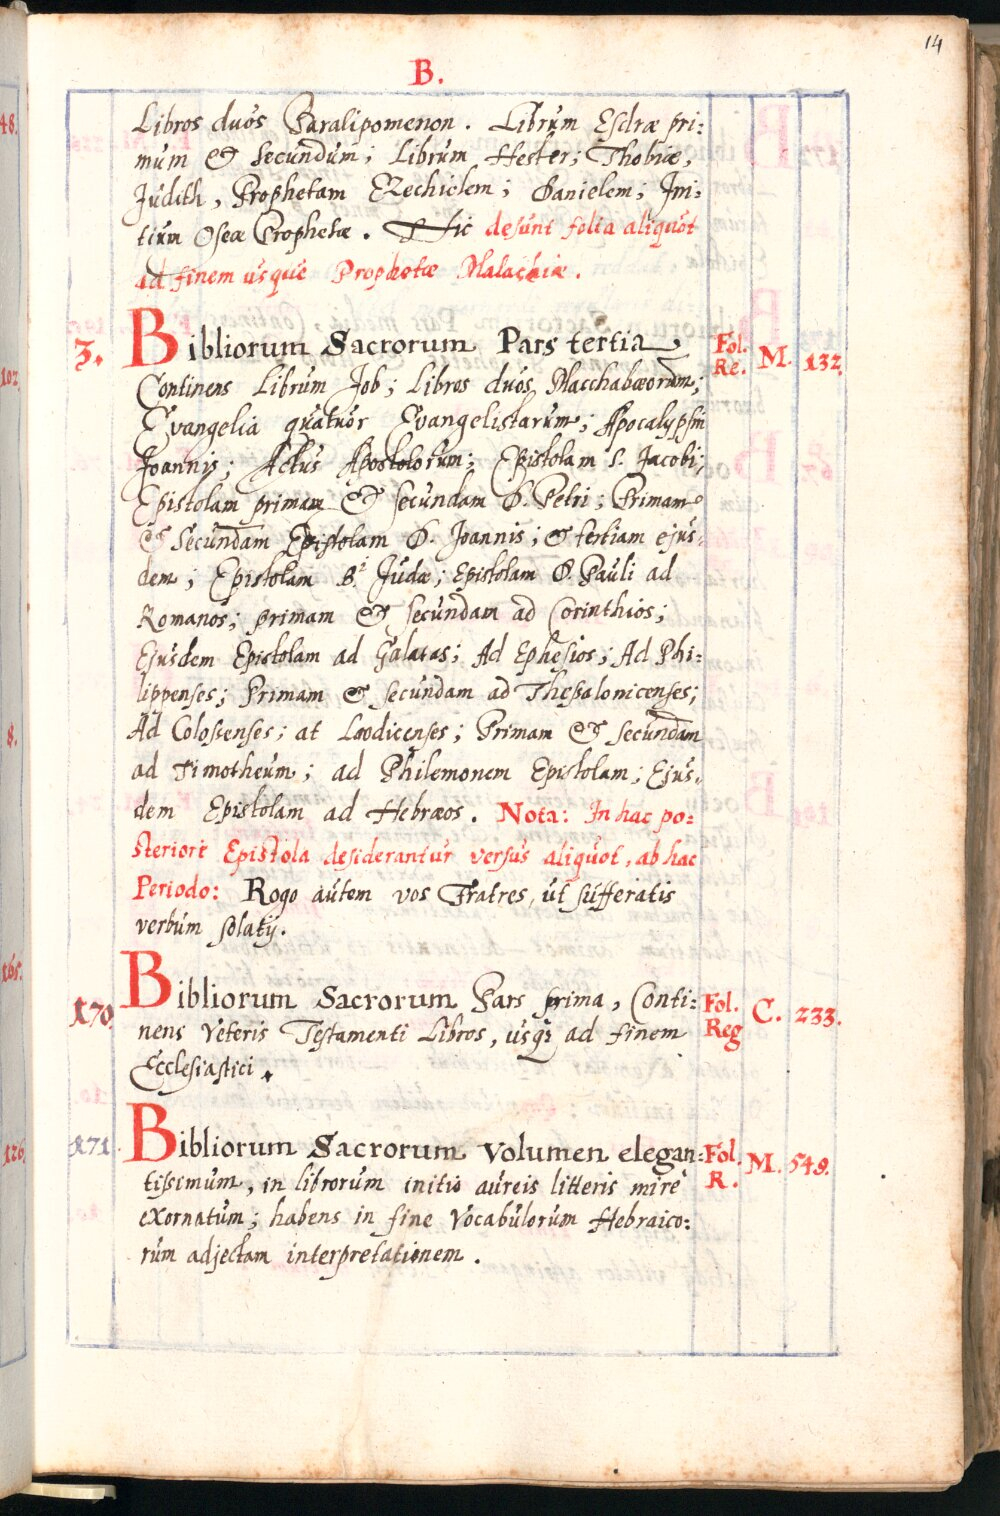 14
B.
Libros duos Paralipomenon. Librum Esdræ pri:
mum & secundum; Librum Hester; Thobiæ,
Judith, Prophetam EZechielem; Danielem; Ini:
tium Oseæ Prophetæ. Hic desunt folia aliquot
ad finem usque Prophetæ Malachiæ.
3. Bibliorum Sacrorum Pars tertia Fol. Re. M. 132.
Continens Librum Job; Libros duos Macchabæorum;
Evangelia quatuor Evangelistarum; Apocalypsin
Joannis; Actus Apostolorum; Epistolam S. Jacobi;
Epistolam primam & secundam D. Petri; Primam
& Secundam Epistolam D. Joannis; & tertiam ejus:
dem; Epistolam B. Judæ; Epistolam D. Pauli ad
Romanos; primam & secundam ad Corinthios;
Ejusdem Epistolam ad Galatas; Ad Ephesios; Ad Phi:
lippenses; Primam & secundam ad Thessalonicenses;
Ad Colossenses; at Laodicenses; Primam & secundam
ad Timotheum; ad Philemonem Epistolam; Ejus:
dem Epistolam ad Hebræos. Nota: In hac po:
steriore Epistola desiderantur versus aliquot, ab hac
Periodo: Rogo autem vos Fratres, ut sufferatis
verbum solatij.
170. Bibliorum Sacrorum Pars prima, Conti: Fol. Reg C. 233.
nens Veteris Testamenti Libros, usq; ad finem
Ecclesiastici.
171. Bibliorum Sacrorum volumen elegan: Fol. R. M. 549.
tissimum, in librorum initio aureis litteris mirè
eXornatum; habens in fine Vocabulorum Hebraico:
rum adjectam interpretationem.
48.
102
8.
165.
126.